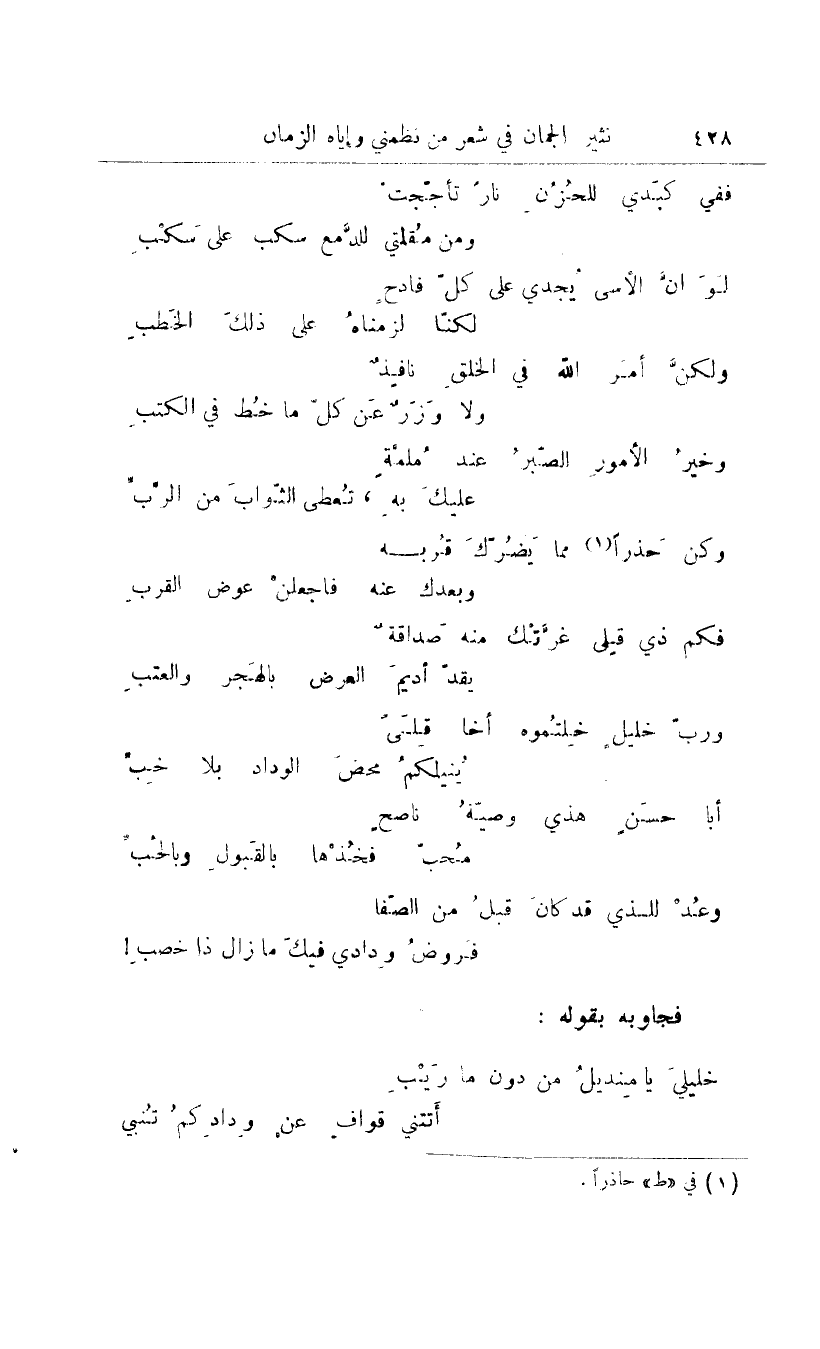 ٤٢٨ نثير الجمان في شعر من نظمني وإياه الزمان
ففي كبَدي للحُزْن نارٌ تأجّجتْ
ومن مُقلتي للدَّمع سكب على سَكْبِ
لوَ انَّ الأسى يُجدي على كلّ فادحٍ
لكنّا لزمناهُ على ذلكَ الخَطبِ
ولكنَّ أمرَ اللهَ في الخلقِ نافِذٌ
ولا وَزَرٌ عَن كلّ ما خُط في الكتبِ
وخيرُ الأمورِ الصّبرُ عند مُلمَّةٍ
عليكَ بهِ ، تُعطى الثّوابَ من الرّبِّ
وكن حَذراً(١) مما يَضُرّكَ قُربـــه
وبعدك عنه فاجعلنْ عوض القربِ
فكم ذي قِلى غرَّتْك منه صَداقةٌ
يقدّ أديمَ العرض بالهَجر والعتبِ
وربّ خليلٍ خِلتُموه أخا قِلىً
يُنيلكمُ محضَ الوداد بلا خِبِّ
أبا حسَنٍ هذي وصيّةُ ناصحٍ
مُحبّ فخُذْها بالقَبولِ وبالحُبِّ
وعُدْ للـذي قد كانَ قبلُ من الصّفا
فَروضُ وِدادي فيكَ ما زال ذا خصبِ!
فجاوبه بقوله :
خليليَ يا مِنديلُ من دون ما رَيْبِ
أَتتني قوافٍ عن وِدادِكمُ تُنبي
(١) في «ط» حاذراً .